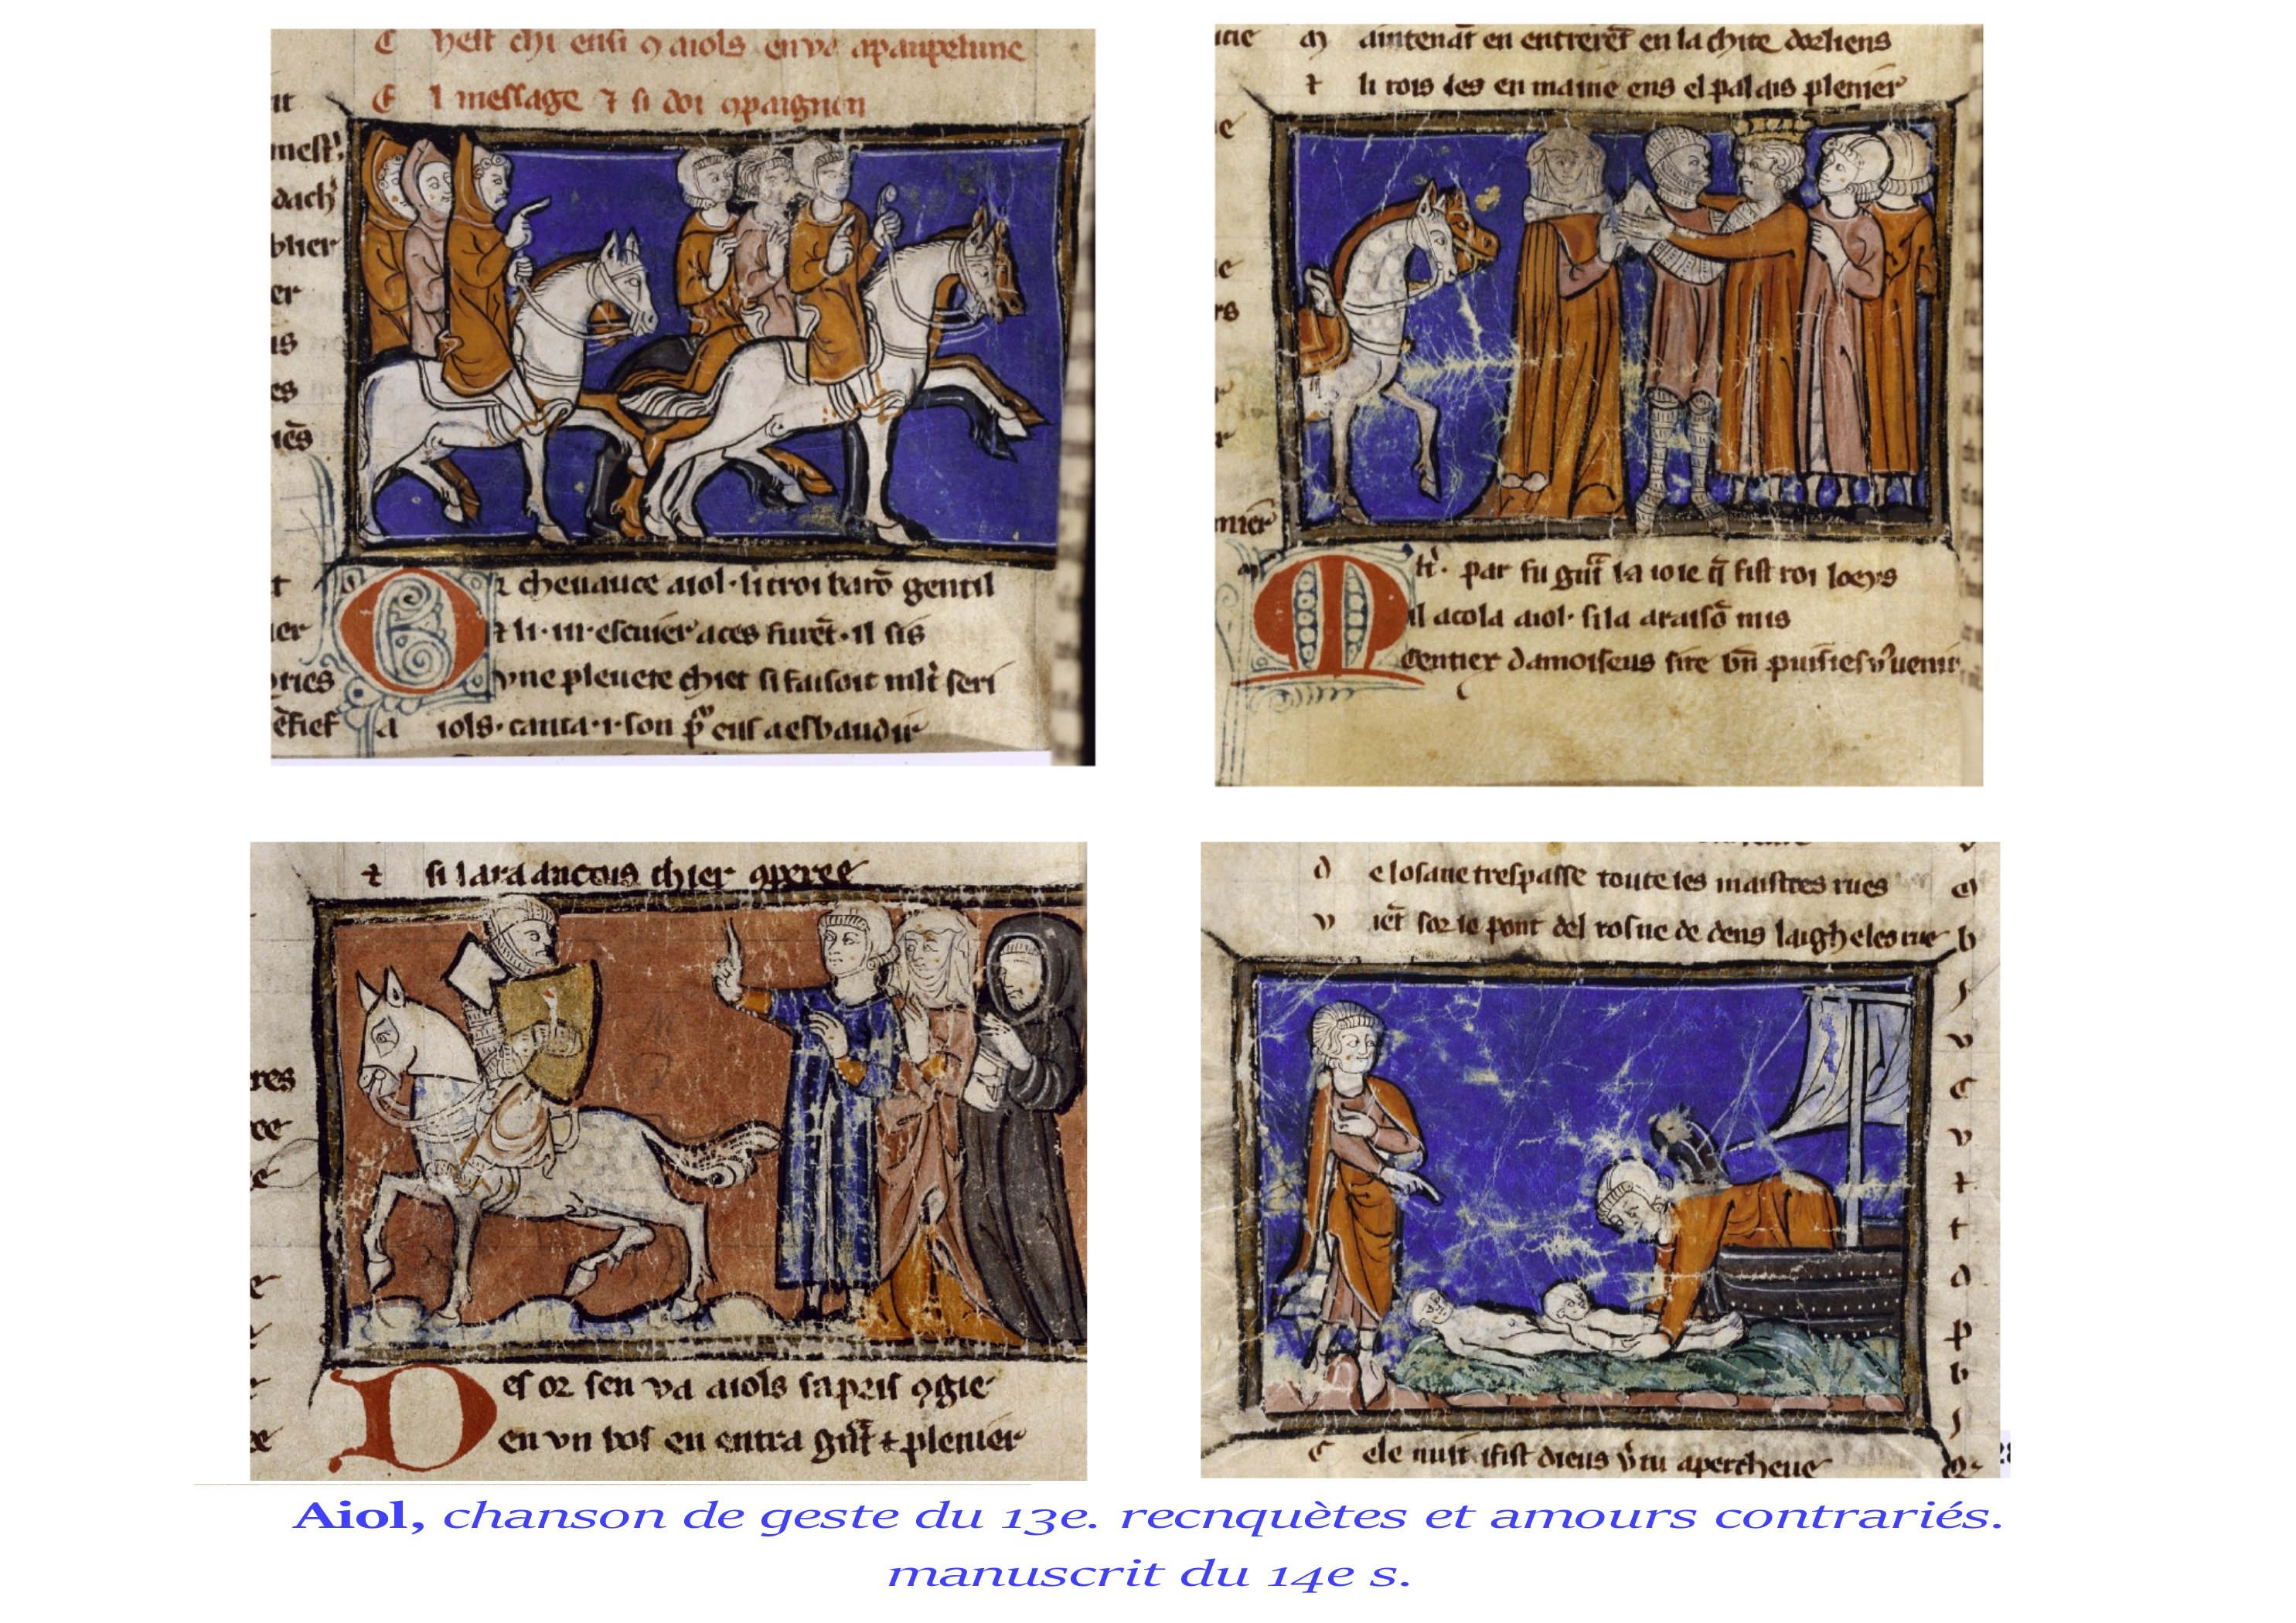 C hest chi ensi ꝯ aiols en va a panpelune
E l message ⁊ si doi ꝯpaignon
it
mest
dach
blier
er
us
es
iēs
t
ier
O r cheuauce aiol· li troi barō gentil
⁊ li ·iii· escuier aces furēt· il sis
vne pleuete chiet si faisoit mlt seri
a iols· canta ·i· son
eus aesbaudir
m aintenāt en entrerēt en la chite dorliens
⁊ li rois les en maine ens el palais plenier
e
rs
mier
M lt· par fu la ioie fist roi loeys
Il acola aiol· si la araisō mis
Gentiex damoiseus sire puissies uenir
⁊ si lara ancois chier ꝯperee
res
ee
e
D es or sen va aiols sa pris ꝯgie
en vn bos en entra ⁊ plenier
d e losane trespasse toute les maistres rues
v iēt sor le pont del rosne de dens laighe les rue
C ele nuit ifist dieus apercheue
Aiol, chanson de geste du 13e. recnquètes et amours contrariés.
manuscrit du 14e s.